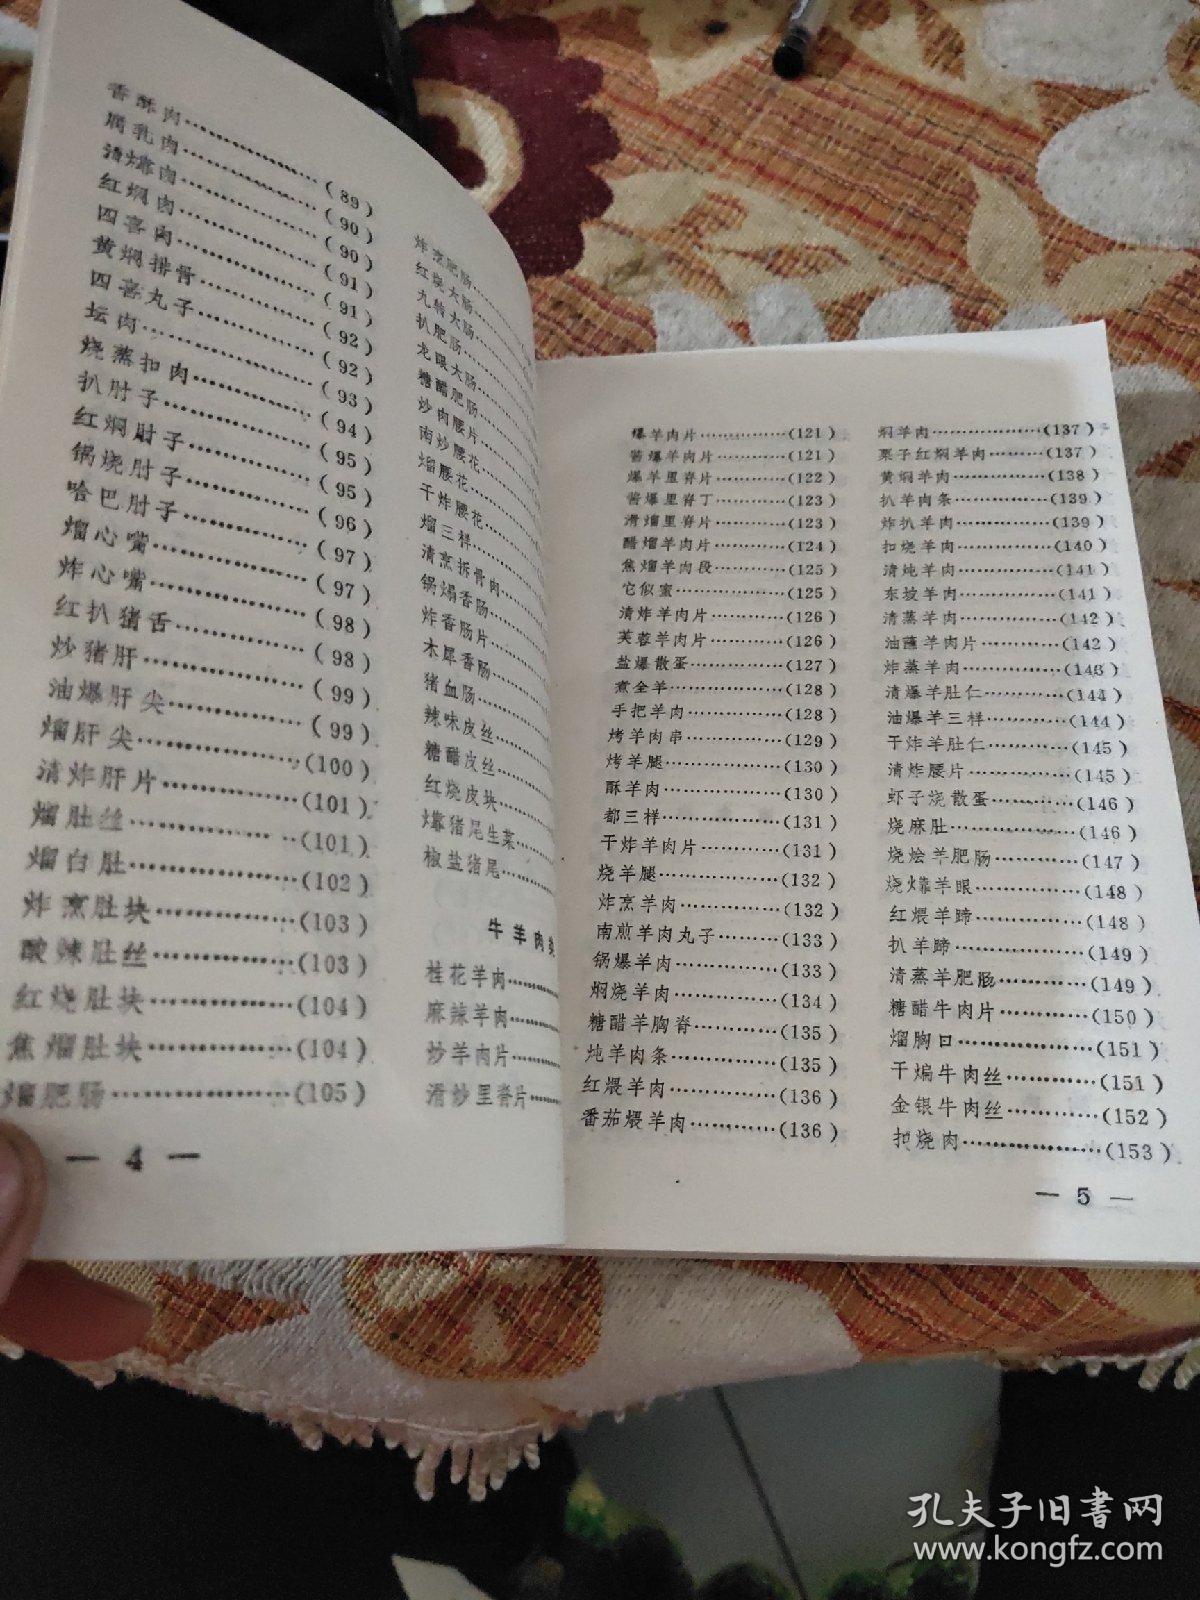 香酥肉……………(89)
腐乳肉……………(90)
清㸆肉……………(90)
红焖肉……………(91)
四喜肉……………(91)
黄焖排骨…………(92)
四喜丸子…………(92)
坛肉………………(93)
烧蒸扣肉…………(94)
扒肘子……………(95)
红焖肘子…………(95)
锅烧肘子…………(96)
哈巴肘子…………(97)
熘心嘴……………(97)
炸心嘴……………(98)
红扒猪舌…………(98)
炒猪肝……………(99)
油爆肝尖…………(99)
熘肝尖……………(100)
清炸肝片…………(101)
熘肚丝……………(101)
熘白肚……………(102)
炸烹肚块…………(103)
酸辣肚丝…………(103)
红烧肚块…………(104)
焦熘肚块…………(104)
熘肥肠……………(105)
炸烹肥肠…
红烧大肠…
九转大肠…
扒肥肠…
龙眼大肠…
糖醋肥肠…
炒肉腰片…
南炒腰花…
熘腰花…
干炸腰花…
熘三样…
清烹拆骨肉…
锅塌香肠…
炸香肠片…
木犀香肠…
猪血肠…
辣味皮丝…
糖醋皮丝…
红烧皮块…
㸆猪尾生菜…
椒盐猪尾…
牛羊肉类
桂花羊肉…
麻辣羊肉…
炒羊肉片…
滑炒里脊片…
— 4 —
爆羊肉片……………(121)
酱爆羊肉片…………(121)
爆羊里脊片…………(122)
酱爆里脊丁…………(123)
滑熘里脊片…………(123)
醋熘羊肉片…………(124)
焦熘羊肉段…………(125)
它似蜜………………(125)
清炸羊肉片…………(126)
芙蓉羊肉片…………(126)
盐爆散蛋……………(127)
煮全羊………………(128)
手把羊肉……………(128)
烤羊肉串……………(129)
烤羊腿………………(130)
酥羊肉………………(130)
都三样………………(131)
干炸羊肉片…………(131)
烧羊腿………………(132)
炸烹羊肉……………(132)
南煎羊肉丸子………(133)
锅爆羊肉……………(133)
焖烧羊肉……………(134)
糖醋羊胸脊…………(135)
炖羊肉条……………(135)
红煨羊肉……………(136)
番茄煨羊肉…………(136)
焖羊肉………………(137)
栗子红焖羊肉………(137)
黄焖羊肉……………(138)
扒羊肉条……………(139)
炸扒羊肉……………(139)
扣烧羊肉……………(140)
清炖羊肉……………(141)
东坡羊肉……………(141)
清蒸羊肉……………(142)
油蘸羊肉片…………(142)
炸蒸羊肉……………(143)
清爆羊肚仁…………(144)
油爆羊三样…………(144)
干炸羊肚仁…………(145)
清炸腰片……………(145)
虾子烧散蛋…………(146)
烧麻肚………………(146)
烧烩羊肥肠…………(147)
烧㸆羊眼……………(148)
红煨羊蹄……………(148)
扒羊蹄………………(149)
清蒸羊肥肠…………(149)
糖醋牛肉片…………(150)
熘胸口………………(151)
干煸牛肉丝…………(151)
金银牛肉丝…………(152)
扣烧肉………………(153)
— 5 —
孔夫子旧书网
www.kongfz.com